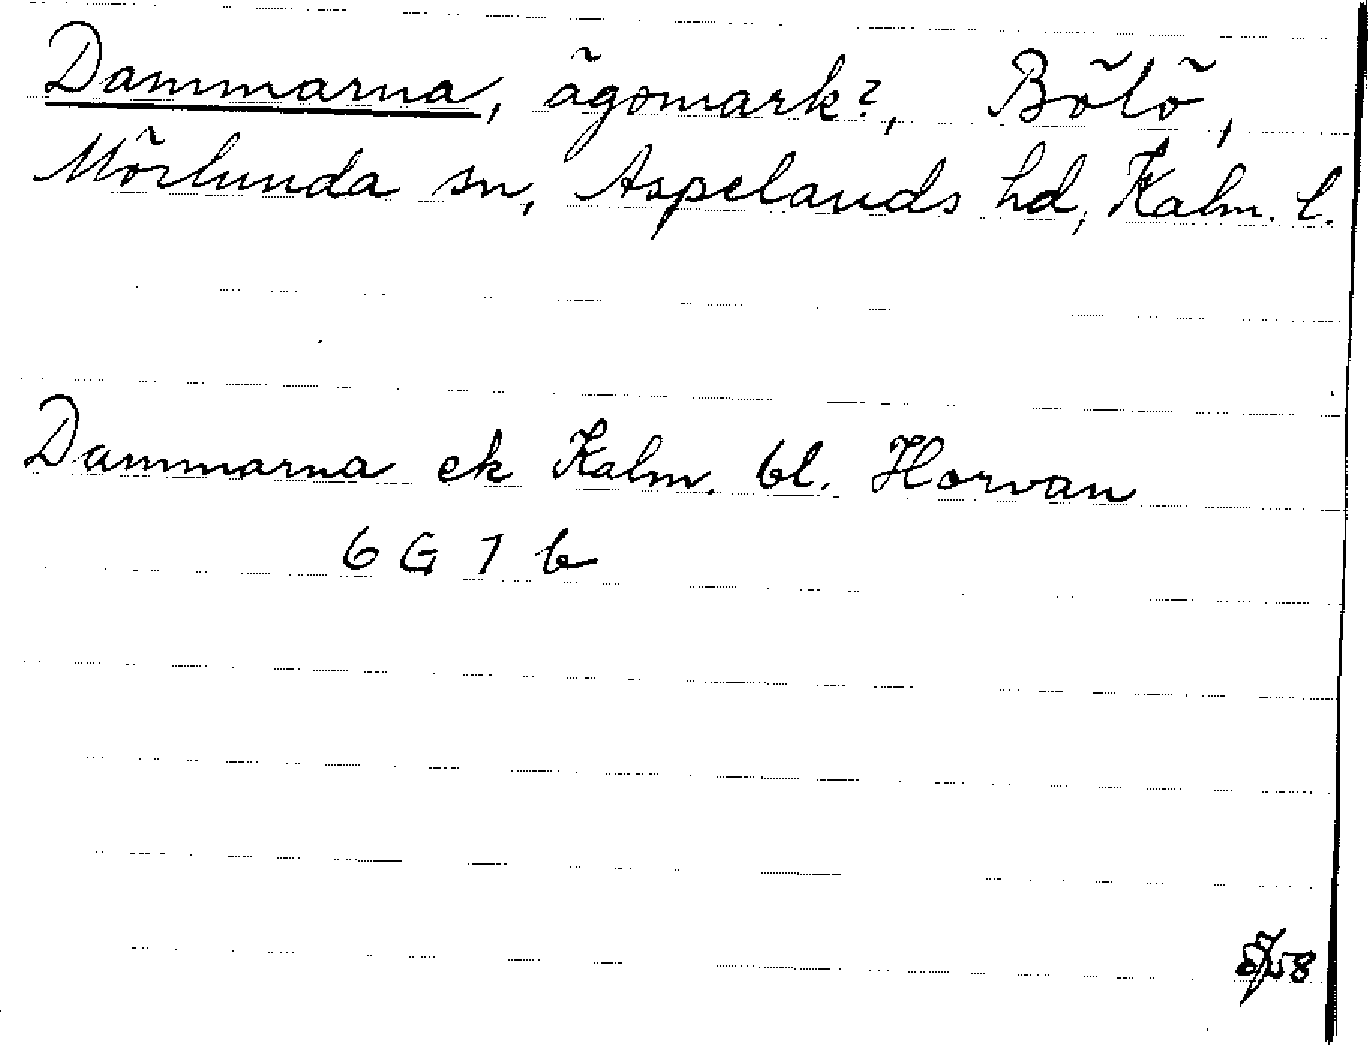 Dammarna, ägomark?, Bölö,
Mörlunda sn, Aspelands hd, Kalm. l.
Dammarna ek Kalm. bl. Horvan
6 G 7 b